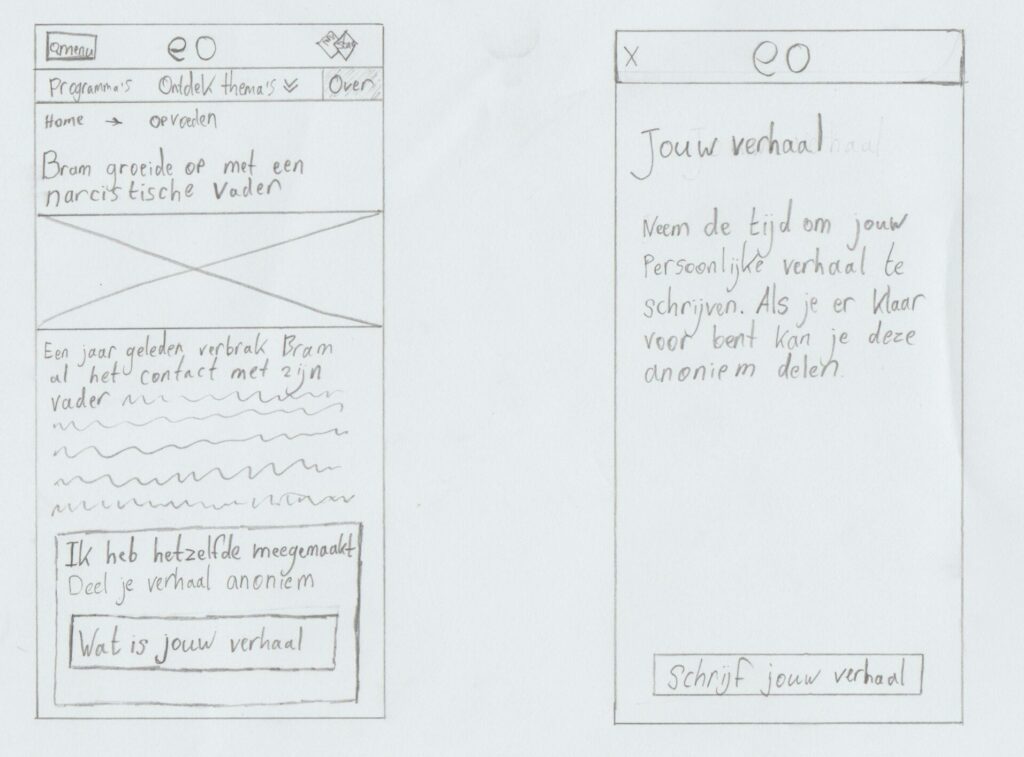 menu
eo
Programma's Ontdek thema's Over
Home → opvoeden
Bram groeide op met een
narcistische vader
Een jaar geleden verbrak Bram
al het contact met zijn
vader
Ik heb hetzelfde meegemaakt
Deel je verhaal anoniem
Wat is jouw verhaal
X eo
Jouw verhaal
Neem de tijd om jouw
Persoonlijke verhaal te
schrijven. Als je er klaar
voor bent kan je deze
anoniem delen.
Schrijf jouw verhaal